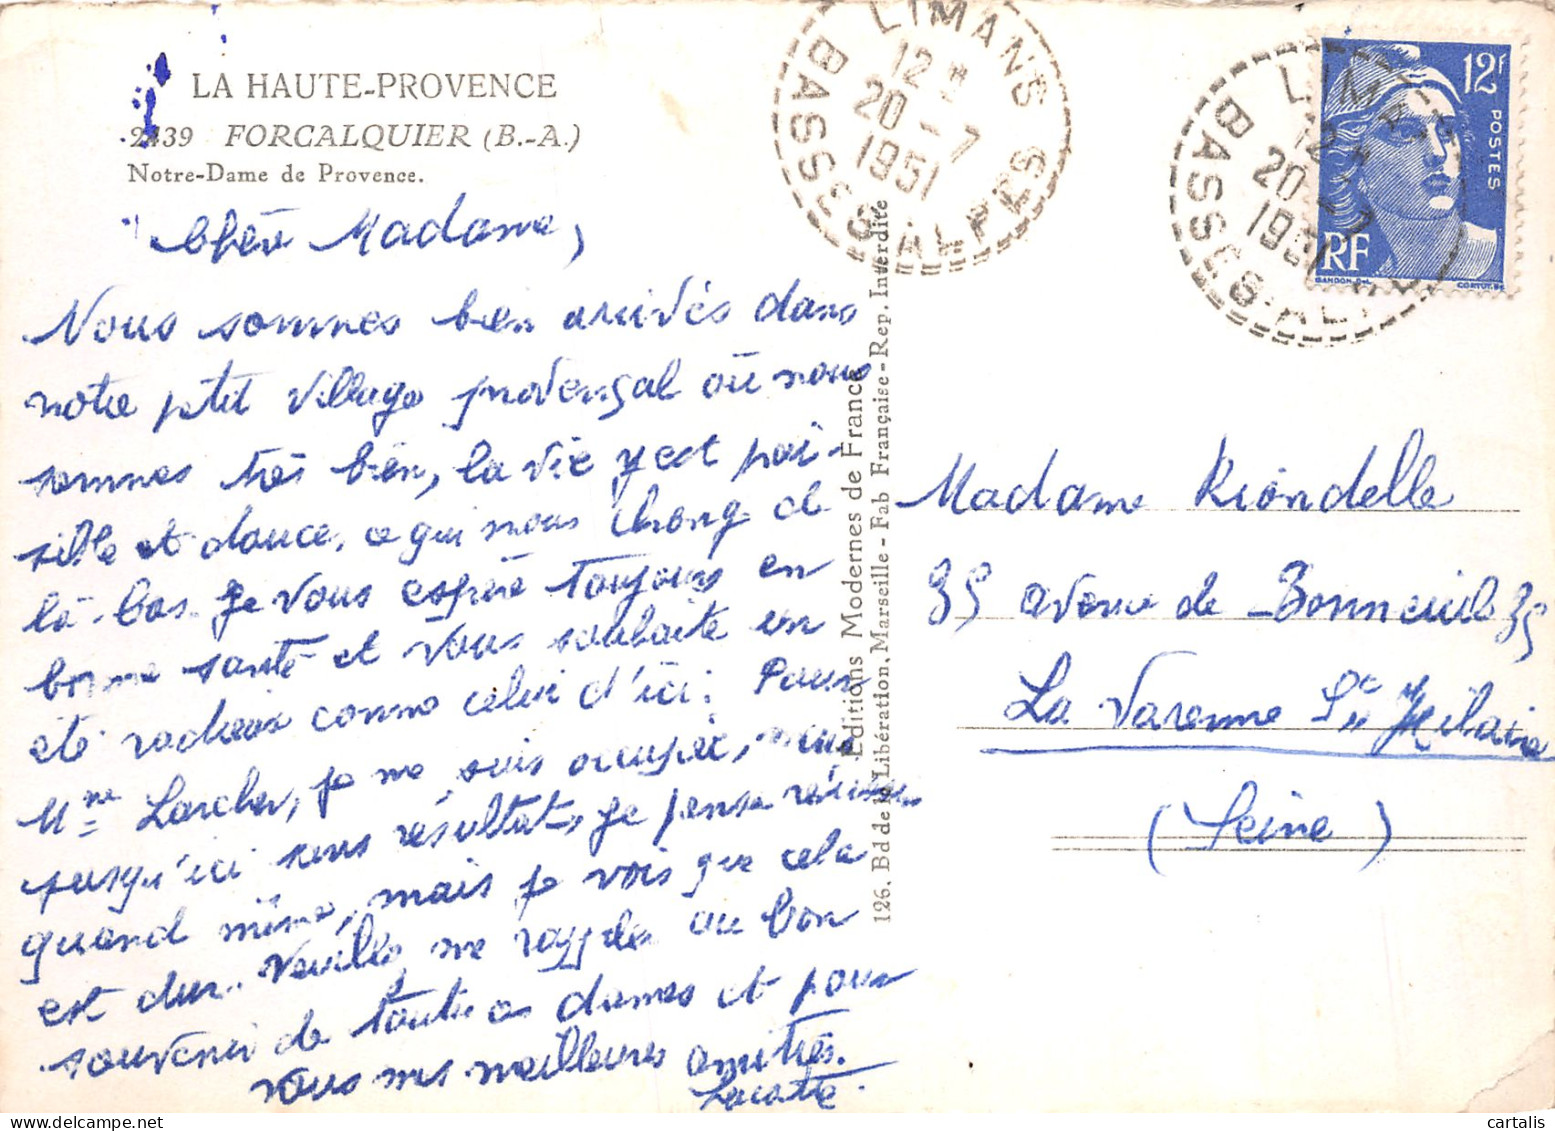 LA HAUTE-PROVENCE
2439 FORCALQUIER (B.-A.)
Notre-Dame de Provence.
Chère Madame,
Nous sommes bien arrivés dans
notre ptit village provençal où nous
sommes très bien, la vie y est pai-
sible et douce, ce qui nous change de
là-bas. Je vous espère toujours en
bonne santé et vous souhaite un
été radieux comme celui d'ici. Pour
Mme Larcher, je me suis occupée, mais
jusqu'ici sans résultats, je pense réussir
quand même, mais je vois que cela
est dur. Veuillez me rappeler au bon
souvenir de toutes ces dames et pour
vous mes meilleures amitiés.
Lacotte.
Editions Modernes de France
126, Bd de la Libération, Marseille - Fab Française - Rep. Interdite
LIMANS
12 H
20 - 7
1951
BASSES-ALPES
LIMANS
12 H
20 - 7
1951
BASSES-ALPES
12f
POSTES
RF
GANDON. Del.
CORTOT. Sc
Madame Riondelle
35 avenue de Bonneuil 35
La Varenne St Hilaire
(Seine)
cartalis